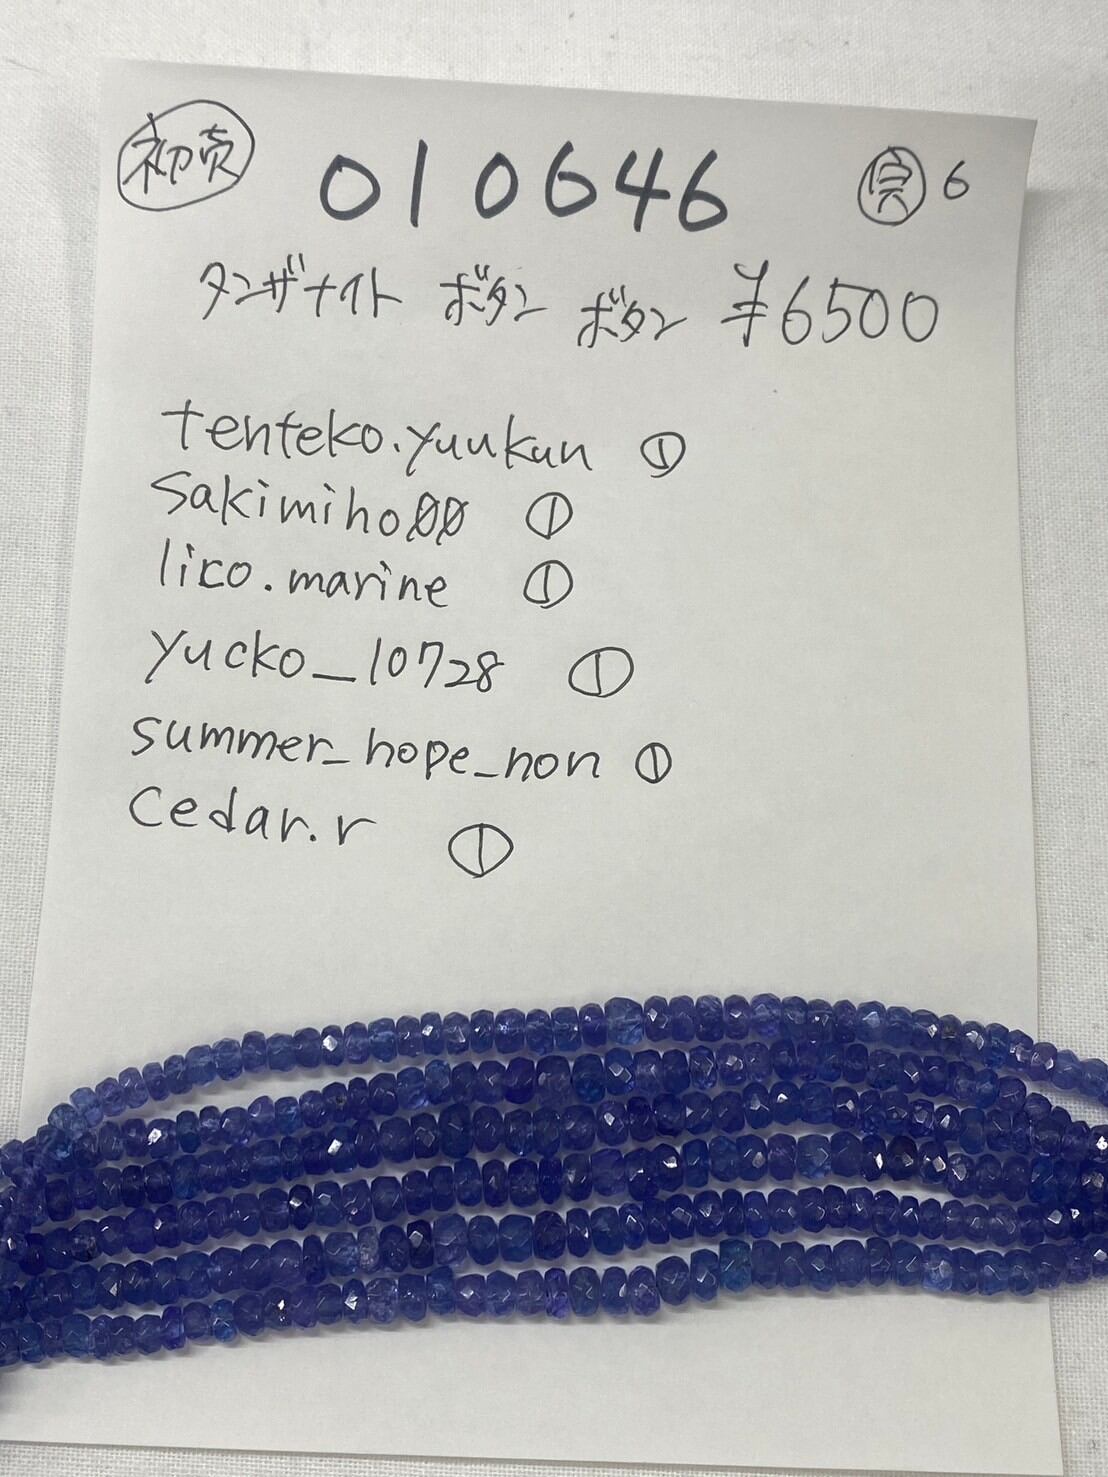 初売 010646 6
タンザナイト ボタン ボタン ¥6500
tenteko.yuukun ①
sakimiho00 ①
lico.marine ①
yucko_10728 ①
summer_hope_non ①
cedar.r ①